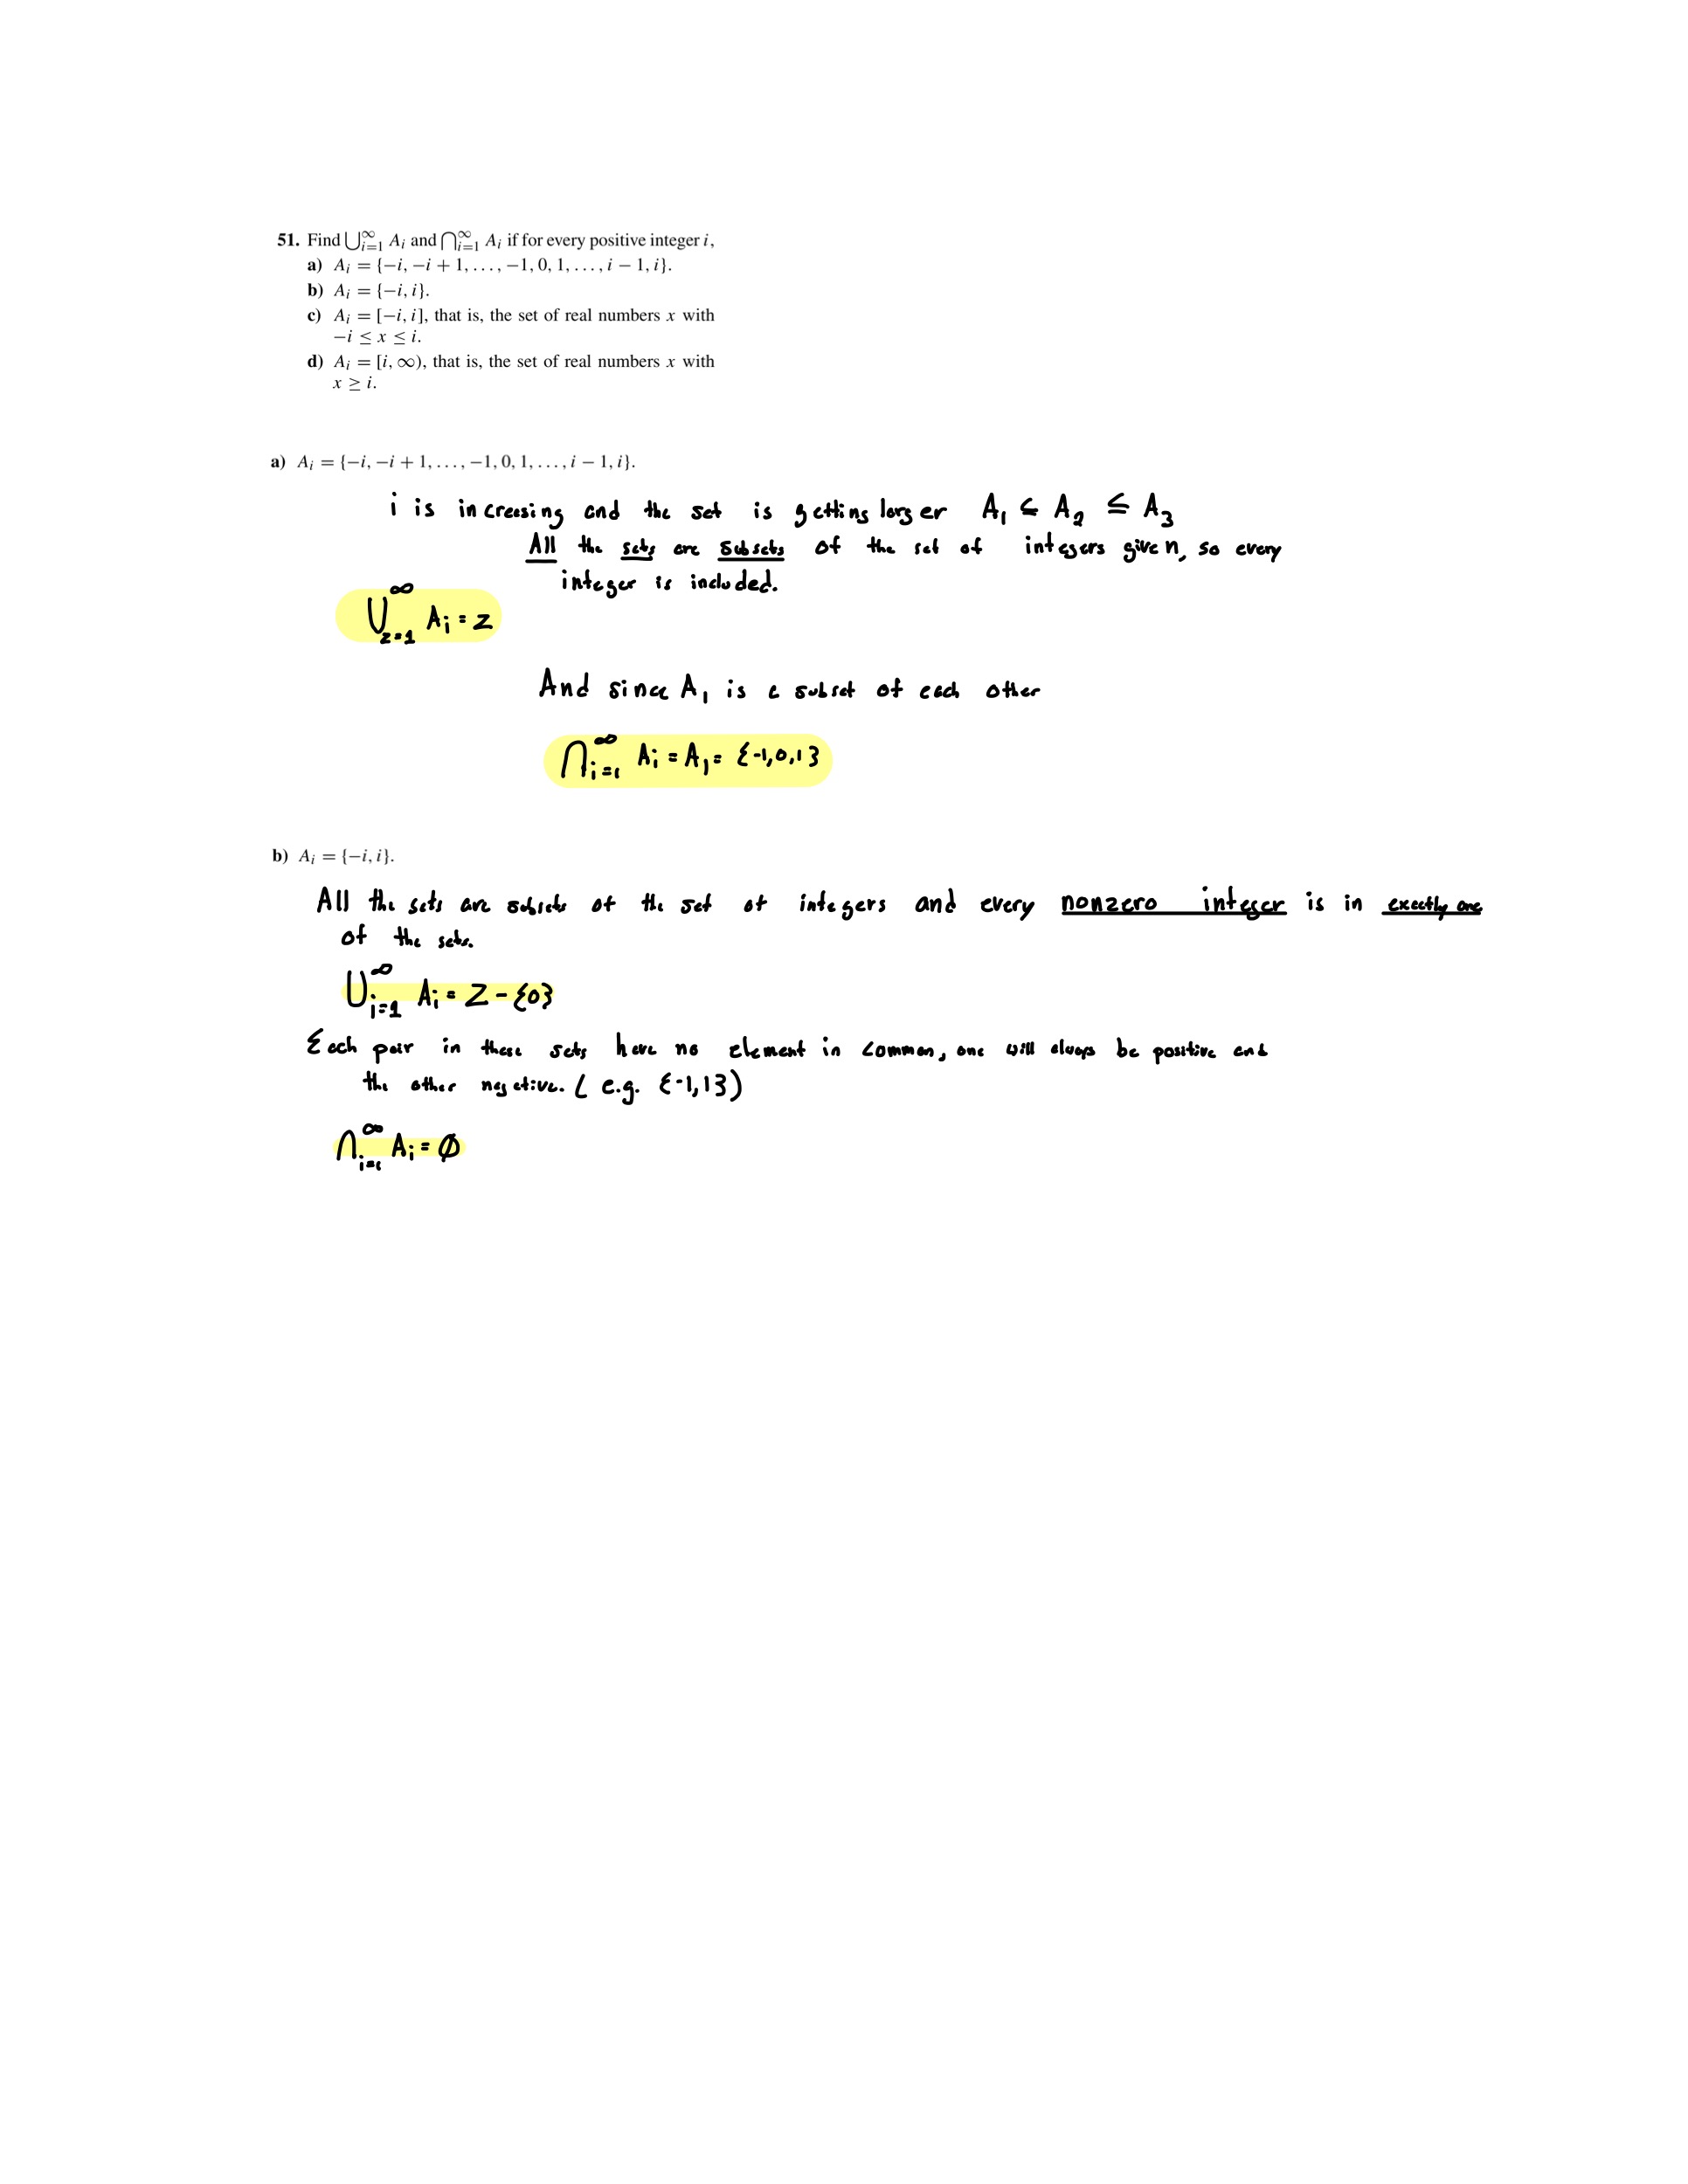 51. Find ⋃_{i=1}^∞ A_i and ⋂_{i=1}^∞ A_i if for every positive integer i,
a) A_i = {−i, −i + 1, . . . , −1, 0, 1, . . . , i − 1, i}.
b) A_i = {−i, i}.
c) A_i = [−i, i], that is, the set of real numbers x with
−i ≤ x ≤ i.
d) A_i = [i, ∞), that is, the set of real numbers x with
x ≥ i.
a) A_i = {−i, −i + 1, . . . , −1, 0, 1, . . . , i − 1, i}.
i is increasing and the set is getting larger A_1 ⊆ A_2 ⊆ A_3
All the sets are subsets of the set of integers given, so every
integer is included.
⋃_{z=1}^∞ A_i = Z
And since A_1 is a subset of each other
⋂_{i=1}^∞ A_i = A_1 = {-1,0,1}
b) A_i = {−i, i}.
All the sets are subsets of the set of integers and every nonzero integer is in exactly one
of the sets.
⋃_{i=1}^∞ A_i = Z - {0}
Each pair in these sets have no element in common, one will always be positive and
the other negative. ( e.g. {-1,1})
⋂_{i=1}^∞ A_i = ∅